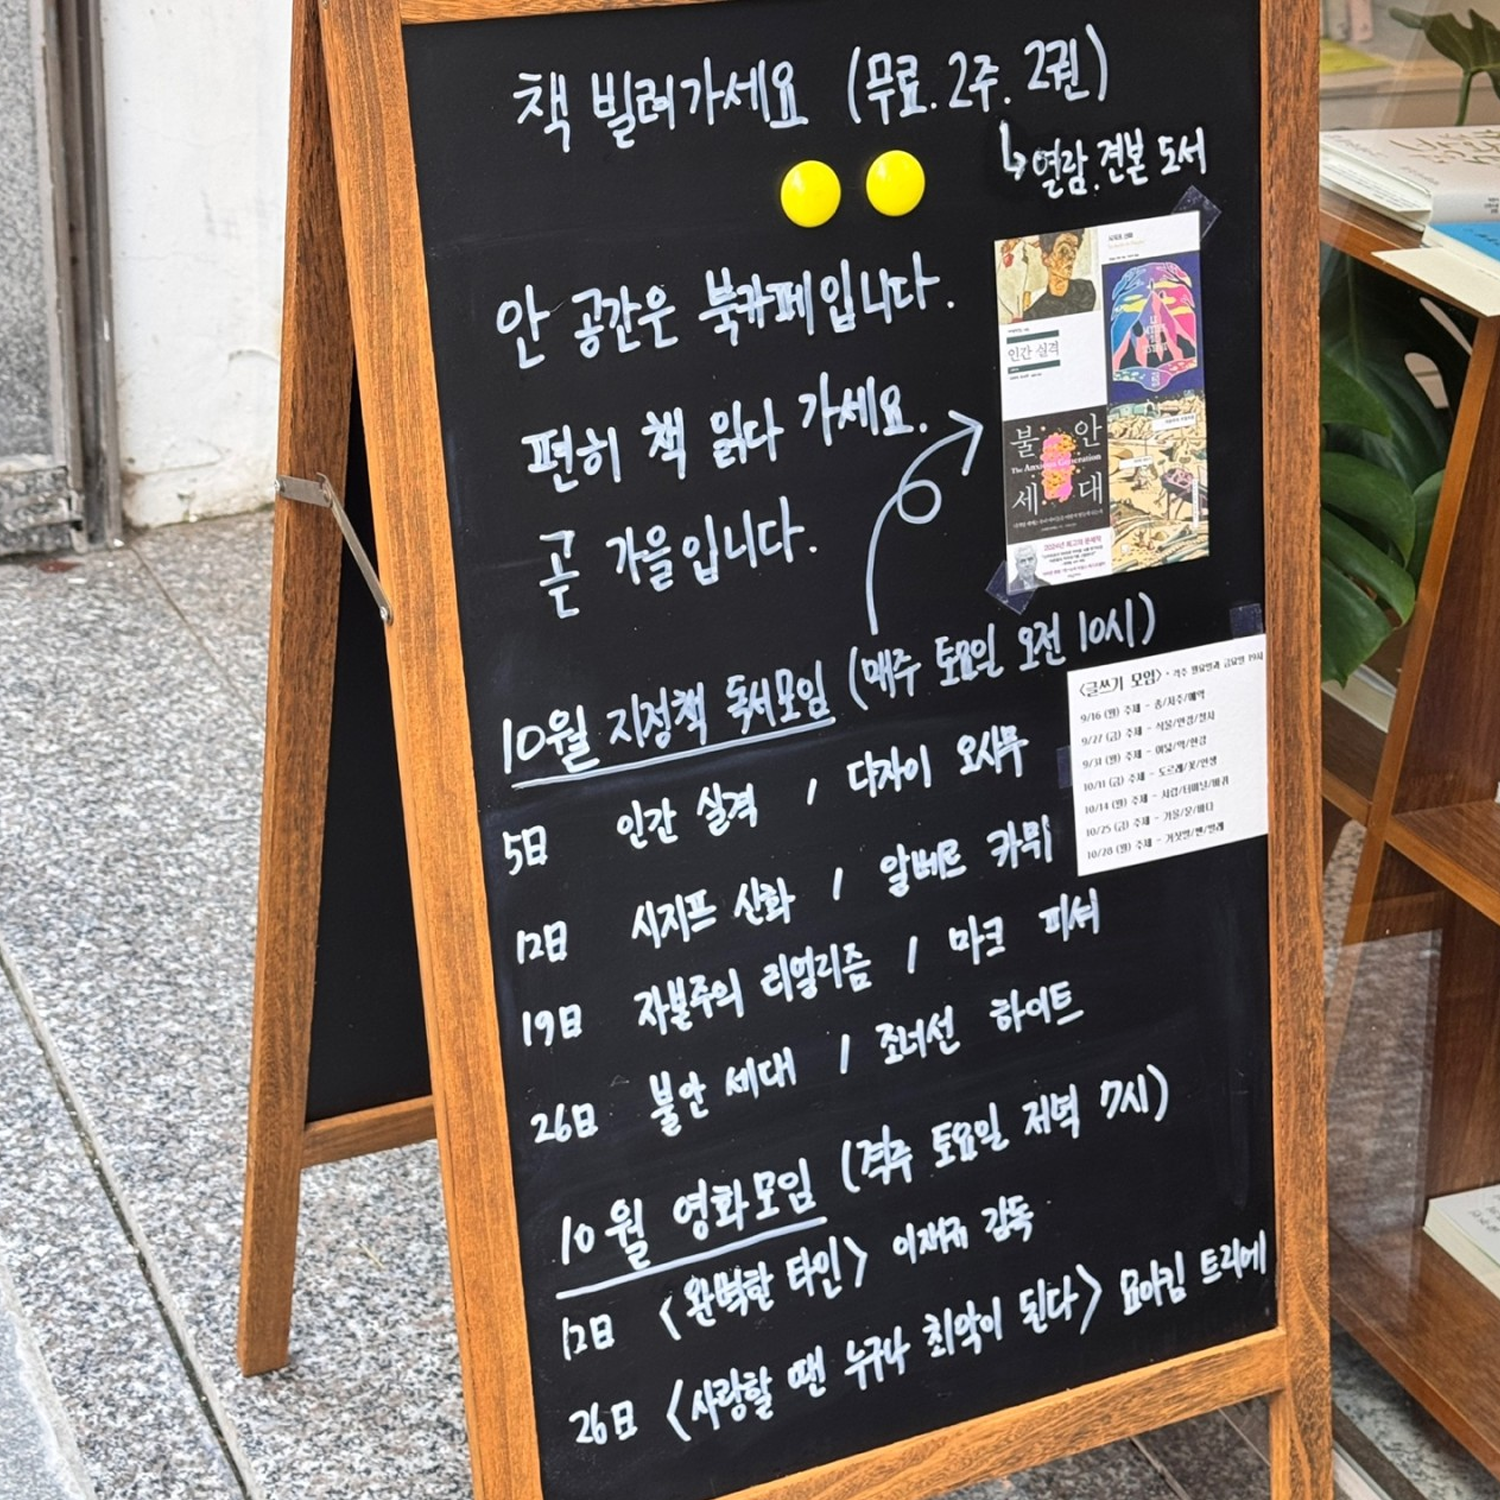 책 빌려가세요 (무료. 2주. 2권)
↳ 열람. 견본 도서
안 공간은 북카페입니다.
편히 책 읽다 가세요.
곧 가을입니다.
인간 실격
불안
The Anxious Generation
세대
2024년 최고의 문제작
10월 지정책 독서모임 (매주 토요일 오전 10시)
5일 인간 실격 / 다자이 오사무
12일 시지프 신화 / 알베르 카뮈
19일 자본주의 리얼리즘 / 마크 피셔
26일 불안 세대 / 조너선 하이트
<글쓰기 모임> - 격주 월요일과 금요일 19시
9/16 (월) 주제 - 송/저주/예악
9/27 (금) 주제 - 식물/안경/철사
9/31 (월) 주제 -
10/11 (금) 주제 - 도르래/꽃/인생
10/14 (월) 주제 - 서랍/터미널/바퀴
10/25 (금) 주제 - 겨울/문/바다
10/28 (월) 주제 - 거짓말/뺨/빨래
10월 영화모임 (격주 토요일 저녁 7시)
12일 <완벽한 타인> 이재규 감독
26일 <사랑할 땐 누구나 최악이 된다> 요아킴 트리에